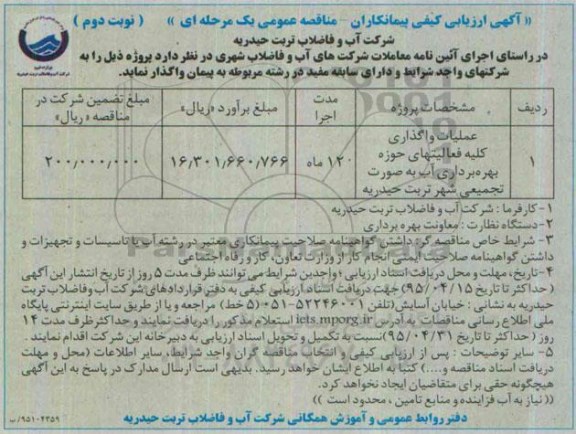 « آگهی ارزیابی کیفی پیمانکاران - مناقصه عمومی یک مرحله ای » ( نوبت دوم )
شرکت آب و فاضلاب تربت حیدریه
در راستای اجرای آئین نامه معاملات شرکت های آب و فاضلاب شهری در نظر دارد پروژه ذیل را به
شرکتهای واجد شرایط و دارای سابقه مفید در رشته مربوطه به پیمان واگذار نماید.
ردیف مشخصات پروژه مدت اجرا مبلغ برآورد «ریال» مبلغ تضمین شرکت در مناقصه «ریال»
۱ عملیات واگذاری کلیه فعالیتهای حوزه بهره‌برداری آب به صورت تجمیعی شهر تربت حیدریه ۱۲ ماه ۱۶٫۳۰۱٫۶۶۰٫۷۶۶ ۲۰۰٫۰۰۰٫۰۰۰
۱- کارفرما : شرکت آب و فاضلاب تربت حیدریه
۲- دستگاه نظارت : معاونت بهره برداری
۳- شرایط خاص مناقصه گر: داشتن گواهینامه صلاحیت پیمانکاری معتبر در رشته آب یا تاسیسات و تجهیزات و
داشتن گواهینامه صلاحیت ایمنی انجام کار از وزارت تعاون، کار و رفاه اجتماعی
۴- تاریخ، مهلت و محل دریافت اسناد ارزیابی : واجدین شرایط می‌توانند ظرف مدت ۵ روز از تاریخ انتشار این آگهی
( حداکثر تا تاریخ ۹۵/۰۴/۱۵) جهت دریافت اسناد ارزیابی کیفی به دفتر قراردادهای شرکت آب و فاضلاب تربت
حیدریه به نشانی : خیابان آسایش (تلفن ۵۲۲۴۶۰۰۱-۰۵۱ (۵ خط) مراجعه و یا از طریق سایت اینترنتی پایگاه
ملی اطلاع رسانی مناقصات به آدرس iets.mporg.ir استعلام مذکور را دریافت نمایند و حداکثر ظرف مدت ۱۴
روز ( حداکثر تا تاریخ ۹۵/۰۴/۳۱) نسبت به تکمیل و تحویل اسناد ارزیابی به دبیرخانه این شرکت اقدام نمایند .
۵- سایر توضیحات : پس از ارزیابی کیفی و انتخاب مناقصه گران واجد شرایط، سایر اطلاعات (محل و مهلت
دریافت اسناد مناقصه و....) کتبا به اطلاع ایشان خواهد رسید. بدیهی است ارسال مدارک در پاسخ به این آگهی
هیچگونه حقی برای متقاضیان ایجاد نخواهد کرد.
(( نیاز به آب فزاینده و منابع تامین ، محدود است ))
دفتر روابط عمومی و آموزش همگانی شرکت آب و فاضلاب تربت حیدریه
۹۵۱۰۴۳۵۹/ب